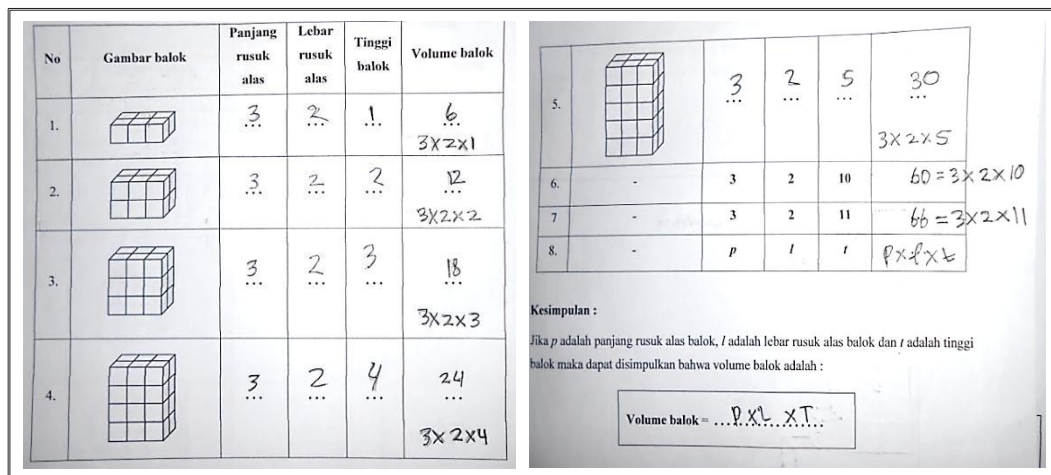 No Gambar balok Panjang rusuk alas Lebar rusuk alas Tinggi balok Volume balok
1. 3 2 1 6
3x2x1
2. 3 2 2 12
3x2x2
3. 3 2 3 18
3x2x3
4. 3 2 4 24
3x2x4
5. 3 2 5 30
3x2x5
6. - 3 2 10 60=3x2x10
7 - 3 2 11 66=3x2x11
8. - p l t pxlxt
Kesimpulan :
Jika p adalah panjang rusuk alas balok, l adalah lebar rusuk alas balok dan t adalah tinggi
balok maka dapat disimpulkan bahwa volume balok adalah :
Volume balok = PXL XT